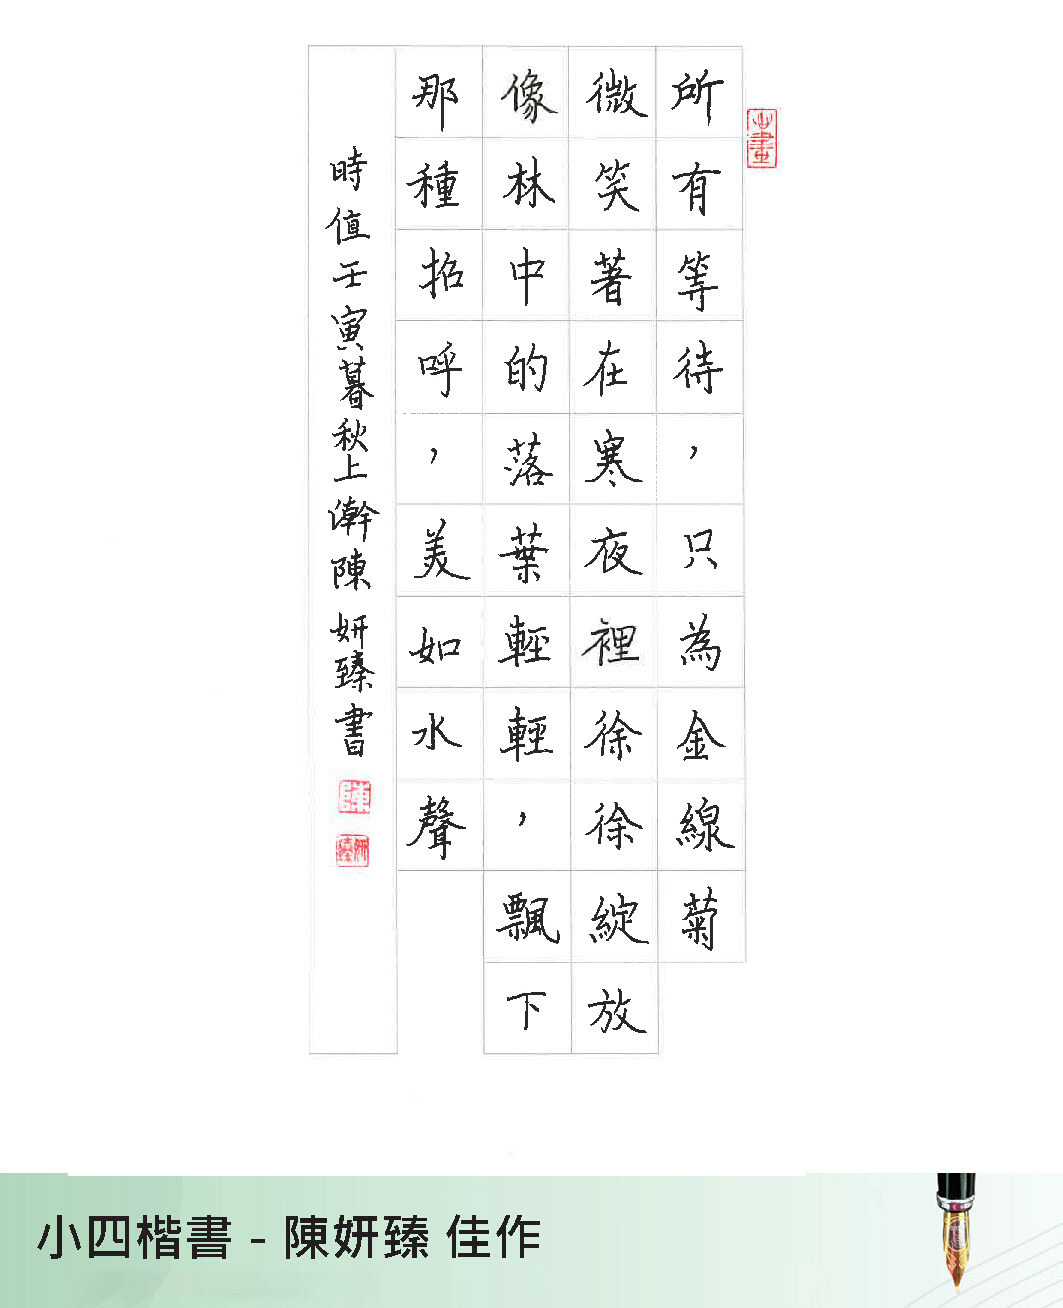 所有等待，只為金線菊
微笑著在寒夜裡徐徐綻放
像林中的落葉輕輕，飄下
那種招呼，美如水聲
時值壬寅暮秋上澣陳妍臻書
陳
妍臻
小四楷書 - 陳妍臻 佳作